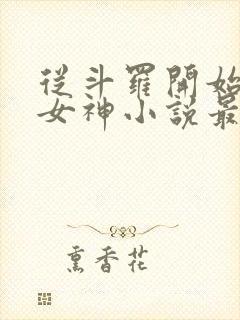 從斗羅開始
女神小說最
熏香花